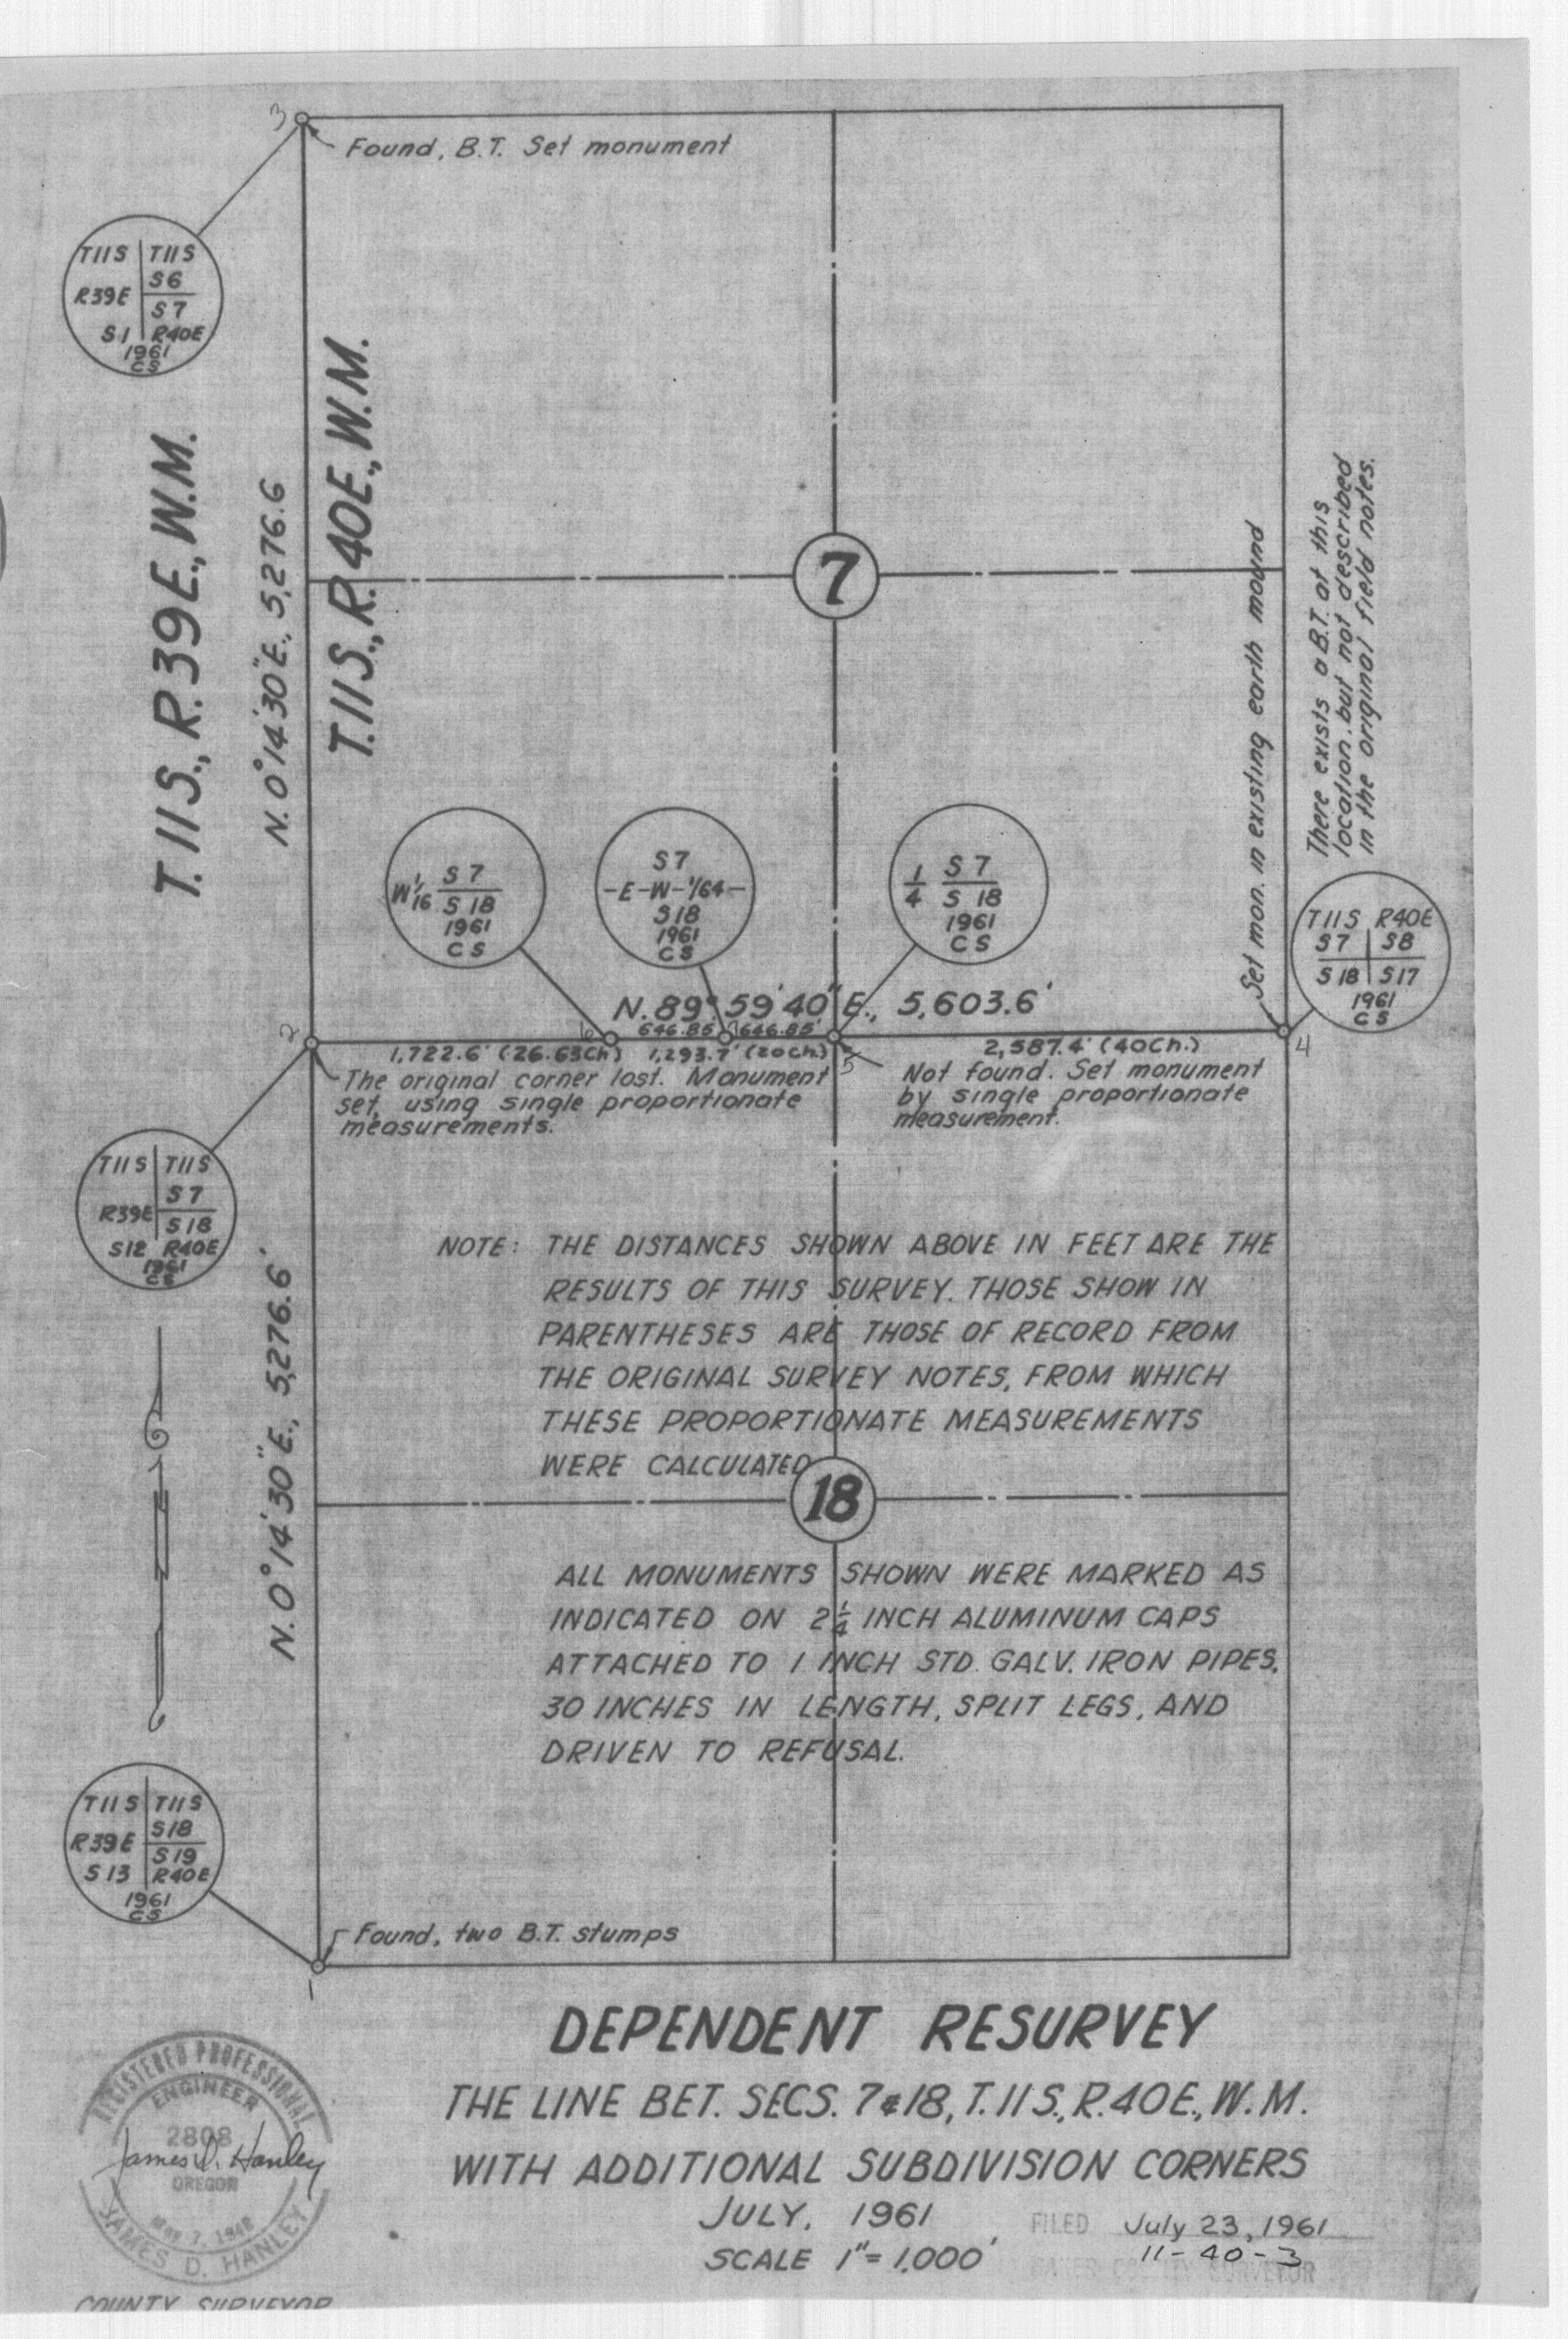 3
Found, B.T. Set monument
T11S T11S
S6
R39E
S7
S1 R40E
1961
CS
T.11S., R.39E., W.M.
N.0°14'30"E., 5,276.6
T.11S., R.40E., W.M.
7
Set mon. in existing earth mound
There exists a B.T. at this
location, but not described
in the original field notes.
W 1/16 S7
S 18
1961
CS
S7
-E-W-1/64-
S18
1961
CS
1/4 S7
S 18
1961
CS
T11S R40E
S7 S8
S18 S17
1961
CS
N.89°59'40"E., 5,603.6'
2
6
646.85' 7 646.85'
1,722.6' (26.63Ch) 1,293.7' (20Ch.)
5
2,587.4' (40Ch.)
4
The original corner lost. Monument
set, using single proportionate
measurements.
Not found. Set monument
by single proportionate
measurement.
T11S T11S
S7
R39E
S18
S12 R40E
1961
CS
N.0°14'30"E., 5,276.6'
NOTE: THE DISTANCES SHOWN ABOVE IN FEET ARE THE
RESULTS OF THIS SURVEY. THOSE SHOW IN
PARENTHESES ARE THOSE OF RECORD FROM
THE ORIGINAL SURVEY NOTES, FROM WHICH
THESE PROPORTIONATE MEASUREMENTS
WERE CALCULATED
18
ALL MONUMENTS SHOWN WERE MARKED AS
INDICATED ON 2 1/4 INCH ALUMINUM CAPS
ATTACHED TO 1 INCH STD. GALV. IRON PIPES,
30 INCHES IN LENGTH, SPLIT LEGS, AND
DRIVEN TO REFUSAL.
T11S T11S
S18
R39E
S19
S13 R40E
1961
CS
Found, two B.T. stumps
1
DEPENDENT RESURVEY
THE LINE BET. SECS. 7&18, T.11S., R.40E., W.M.
WITH ADDITIONAL SUBDIVISION CORNERS
JULY, 1961
SCALE 1"=1,000'
FILED July 23, 1961
11-40-3
SURVEYOR
REGISTERED PROFESSIONAL
ENGINEER
2808
James D. Hanley
OREGON
7, 1948
JAMES D. HANLEY
COUNTY SURVEYOR